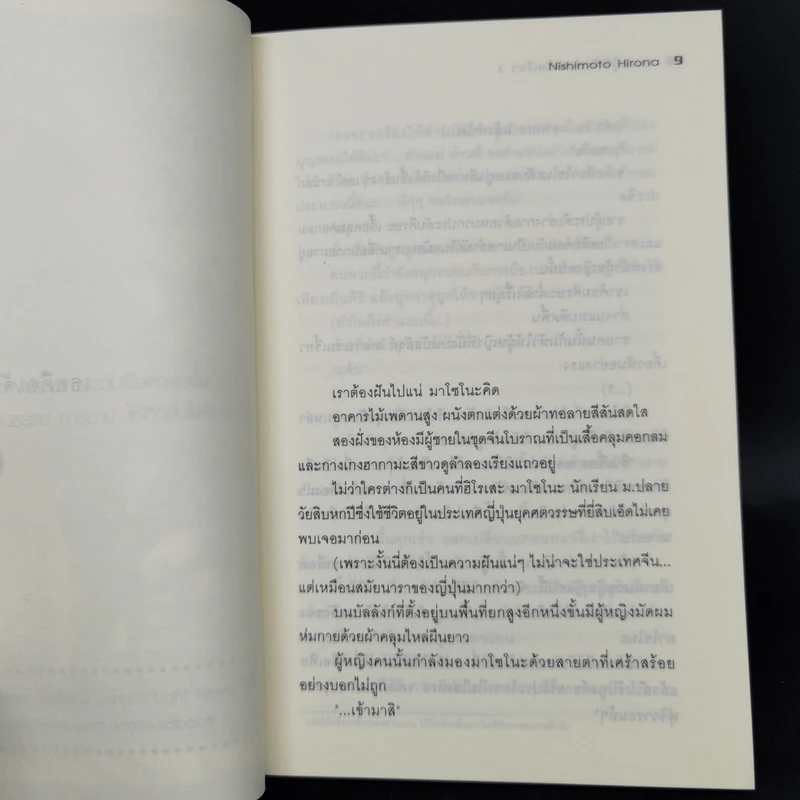 Nishimoto Hirona 9
เราต้องฝันไปแน่ มาโซโนะคิด
อาคารไม้เพดานสูง ผนังตกแต่งด้วยผ้าทอลายสีสันสดใส
สองฝั่งของห้องมีผู้ชายในชุดจีนโบราณที่เป็นเสื้อคลุมคอกลม
และกางเกงฮากามะสีขาวดูลำลองเรียงแถวอยู่
ไม่ว่าใครต่างก็เป็นคนที่ฮิโรเสะ มาโซโนะ นักเรียน ม.ปลาย
วัยสิบหกปีซึ่งใช้ชีวิตอยู่ในประเทศญี่ปุ่นยุคศตวรรษที่ยี่สิบเอ็ดไม่เคย
พบเจอมาก่อน
(เพราะงั้นนี่ต้องเป็นความฝันแน่ๆ ไม่น่าจะใช่ประเทศจีน...
แต่เหมือนสมัยนาราของญี่ปุ่นมากกว่า)
บนบัลลังก์ที่ตั้งอยู่บนพื้นที่ยกสูงอีกหนึ่งขั้นมีผู้หญิงมัดผม
ห่มกายด้วยผ้าคลุมไหล่ผืนยาว
ผู้หญิงคนนั้นกำลังมองมาโซโนะด้วยสายตาที่เศร้าสร้อย
อย่างบอกไม่ถูก
"...เข้ามาสิ"